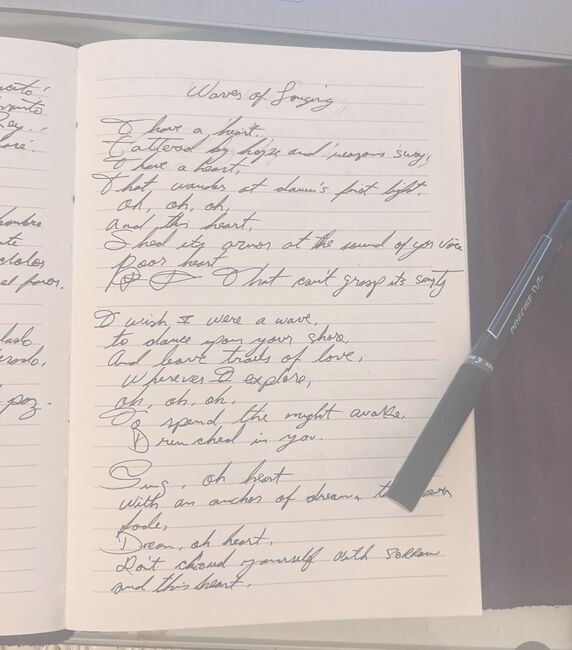 uerto!
Rey.
hombre
nte
el faros.
lado
poz.
Waves of Longing
I have a heart.
Tattered by hope and reasons sway,
I have a heart,
That wander at dawn's first light.
oh, oh, oh,
and this heart,
Shed its armor at the sound of your voice
Poor heart
That can't grasp its
I wish I were a wave,
to dance upon your shore,
And leave trails of love,
Wherever I explore,
oh, oh, oh,
To spend the night awake,
Drenched in you.
Sing, oh heart
With an anchor of dreams
fade,
Dream, oh heart,
Don't cloud yourself with sorrow
and this heart,
PRECISE V5